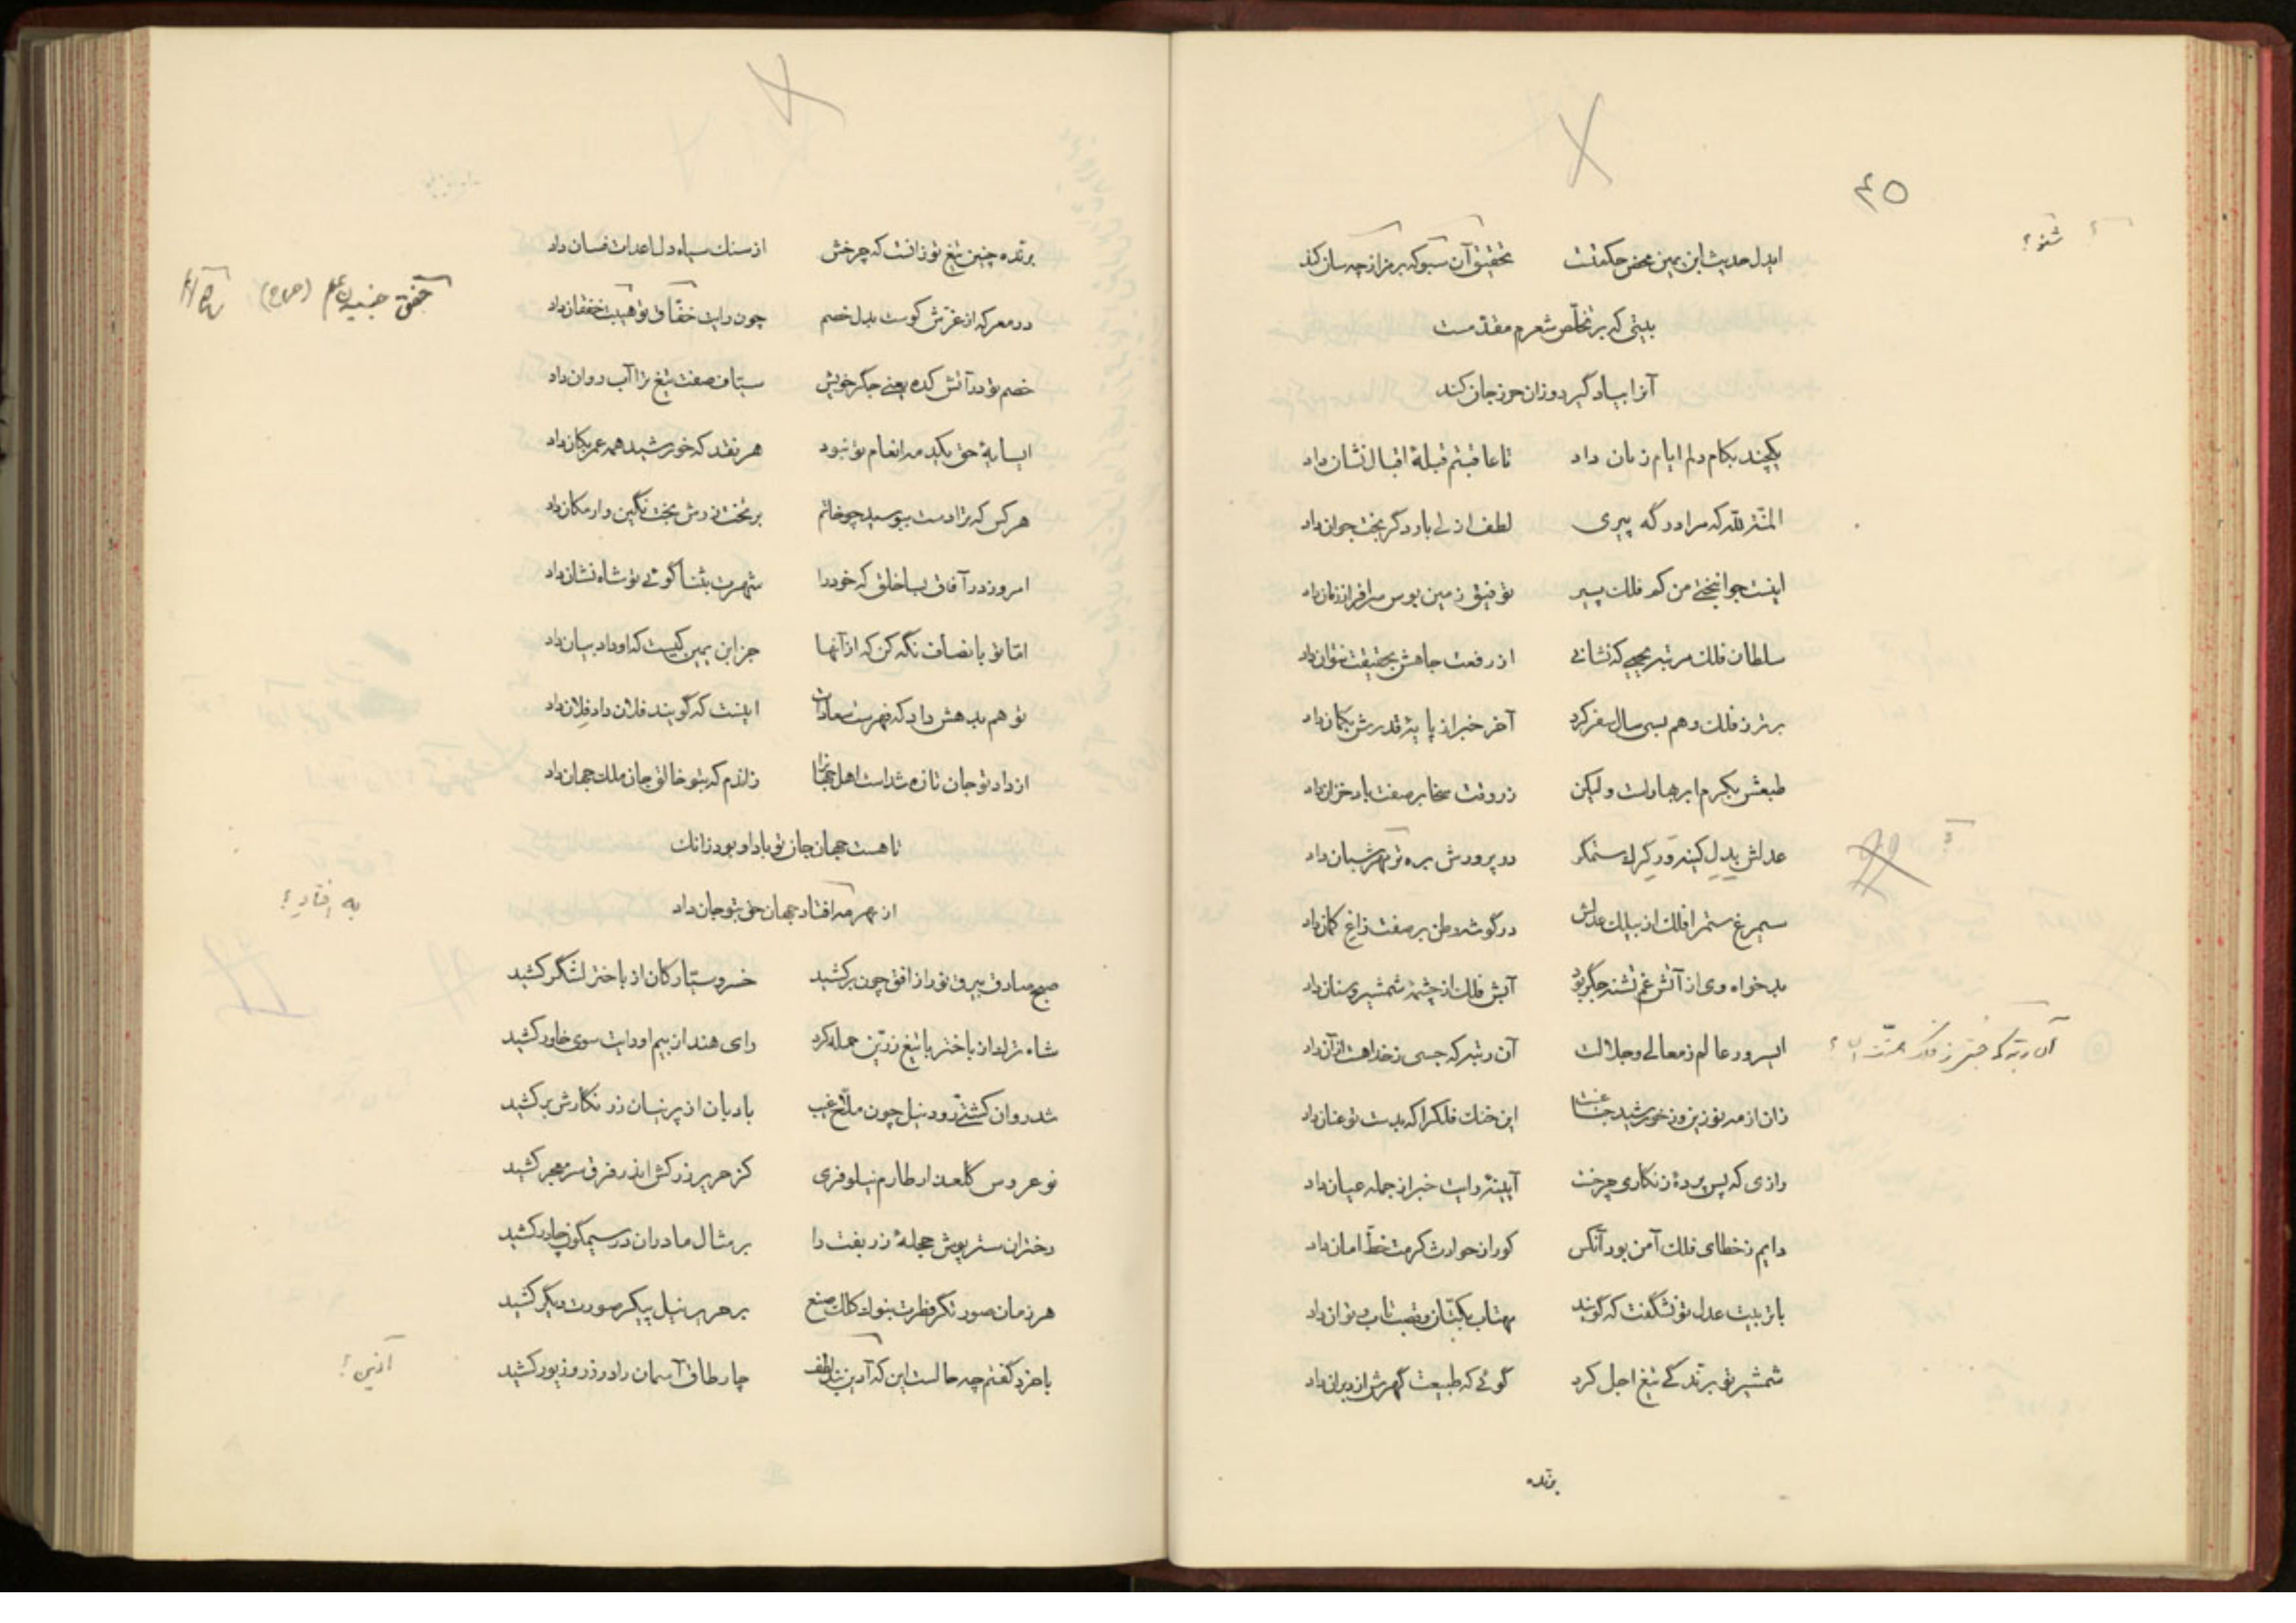 ۴۵
شنو؟
ایدل حدیث ابن یمین محض حکمتست تحقیق آن شنو که برمز از چه سان کند
بیتی که بر تخلّص شعرم مقدّمست
آنرا بیاد گیر و زان حرز جان کند
یکچند بکام دلم ایام زمان داد تا عاقبتم قبلهٔ اقبال نشان داد
المنّة لله که مرا در گه پیری لطف ازلی بار دگر بخت جوان داد
اینست جوانبختی من کم فلک پیر توفیق زمین بوس سرافراز زمان داد
سلطان فلک مرتبه یحیی که نشانی از رفعت جاهش بحقیقت نتوان داد
برتر ز فلک وهم بسی سال سفر کرد آخر خبر از پایهٔ قدرش بگمان داد
طبعش بکرم ابر بهارست ولیکن زر وقت سخا بر صفت باد خزان داد
عدلش بدل کینه‌ور گرک ستمگر در پرورش بره نو مهر شبان داد
سیمرغ ستم را فلک از بیلک عدلش در گوشه وطن بر صفت زاغ کمان داد
بدخواه وی از آتش غم تشنه جگر بود آبش فلک از چشمهٔ شمشیر و سنان داد
ای سرور عالم ز معالی و جلالت آن رتبه که جستی ز خداهت از آن داد
زان از مه نو زین و ز خورشید جناغت این خنک فلک را که بدست تو عنان داد
رازی که پس پردهٔ زنگاری چرخست آیینهٔ رایت خبر از جمله عیان داد
دایم ز خطای فلک آمن بود آنکس کو را ز حوادث کرمت خطّ امان داد
با تربیت عدل تو نشگفت که گویند مهتاب بکتّان و قصب تاب و توان داد
شمشیر تو برّندگی تیغ اجل کرد گوئی که طبیعت گهرش از دیران داد
برّنده
برّنده چنین تیغ تو زانست که چرخش از سنک سیاه دل اعدات فسان داد
در معرکه از غرّش کوست بدل خصم چون رایت خفّاق تو هیبت خفقان داد
خصم تو در آتش کده یعنی جگر خویش سیّاف صفت تیغ ترا آب روان داد
ای سایهٔ حق یکیدمه انعام تو نبود هر نقد که خورشید همه عمر بکان داد
هر کس که ترا دست ببوسید چو خاتم بر تخت زرش بخت نگین وار مکان داد
امروز در آفاق بسا خلق که خود را شهرت بثنا گوئی تو شاه نشان داد
امّا تو بانصاف نگه کن که از آنها جز ابن یمین کیست که او داد بیان داد
تو هم بدهش داد که فهرست سعادات اینست که گویند فلان داد فلان داد
از داد تو جان تازه شد است اهل جهانرا زانرم که بتو خالق جان ملک جهان داد
تا هست جهان جان تو باد او بود زانک
از بهر مه افتاد جهان حق بتو جان داد
به افتاد؟
صبح صادق بیرق نور از افق چون برکشید خسرو سیّارکان از باختر لشگر کشید
شاه ترک از باختر با تیغ زرّین حمله کرد رای هند از بیم او رایت سوی خاور کشید
شد روان کشتی زرود نیل چون ملاّح غیب بادبان از پرنیان زر نگارش برکشید
نو عروس گلعذار طارم نیلوفری کز حریر زرکش اندر فرق سر معجر کشید
دختران ستر پوش حجلهٔ زربفت را بر مثال مادران در سیمگون چادر کشید
هر زمان صورتگر فطرت بنوک کلک صنع بر حریر نیل پیکر صورت دیگر کشید
با خرد گفتم چه حالست این که آذین لطف چار طاق آسمان را در زر و زیور کشید